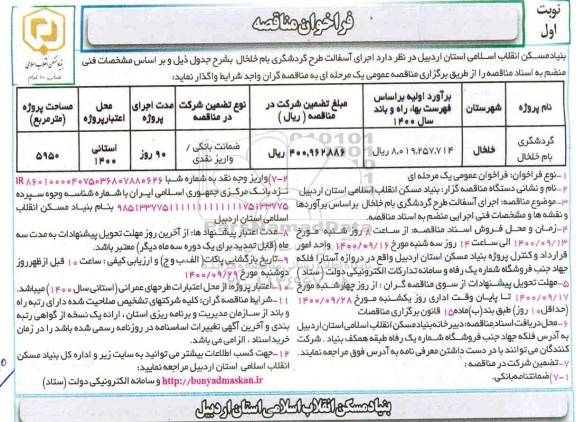 نوبت اول
فراخوان مناقصه
بنیاد مسکن انقلاب اسلامی
بنیادمسکن انقلاب اسلامی استان اردبیل در نظر دارد اجرای آسفالت طرح گردشگری بام خلخال بشرح جدول ذیل و بر اساس مشخصات فنی
منضم به اسناد مناقصه را از طریق برگزاری مناقصه عمومی یک مرحله ای به مناقصه گران واجد شرایط واگذار نماید:
نام پروژه
شهرستان
برآورد اولیه براساس فهرست بها، راه و باند سال ۱۴۰۰
مبلغ تضمین شرکت در مناقصه ( ریال )
نوع تضمین شرکت در مناقصه
مدت اجرای پروژه
محل اعتبارپروژه
مساحت پروژه (مترمربع)
گردشگری بام خلخال
خلخال
۸،۰۱۹،۲۵۷،۷۱۴ ریال
۴۰۰،۹۶۲،۸۸۶ ریال
ضمانت بانکی / واریز نقدی
۹۰ روز
استانی ۱۴۰۰
۵۹۵۰
۱-نوع فراخوان: فراخوان عمومی یک مرحله ای
۲-نام و نشانی دستگاه مناقصه گزار: بنیاد مسکن انقلاب اسلامی استان اردبیل
۳-موضوع مناقصه: اجرای آسفالت طرح گردشگری بام خلخال براساس برآوردها
و نقشه ها و مشخصات فنی اجرایی منضم به اسناد مناقصه.
۴-زمان و محل فروش اسناد مناقصه: از ساعت ۸ روز شنبه مورخ
۱۴۰۰/۰۹/۱۳ الی ساعت ۱۴ روز سه شنبه مورخ ۱۴۰۰/۰۹/۱۶ واحد امور
قرارداد و کنترل پروژه بنیاد مسکن استان اردبیل واقع در دروازه آستارا فلکه
جهاد جنب فروشگاه شماره یک رفاه و سامانه تدارکات الکترونیکی دولت (ستاد )
۵-مهلت تحویل پیشنهادات از سوی مناقصه گران : از روز چهارشنبه مورخ
۱۴۰۰/۰۹/۱۷ تا پایان وقت اداری روز یکشنبه مورخ ۱۴۰۰/۰۹/۲۸
(حداقل ۱۰ روز) طبق بند(ب)ماده۱۵ قانون برگزاری مناقصات
۶-محل دریافت اسناد مناقصه: دبیرخانه بنیاد مسکن انقلاب اسلامی استان اردبیل
به آدرس فلکه جهاد جنب فروشگاه شماره یک رفاه طبقه همکف بنیاد . شرکت
کنندگان می توانند با در دست داشتن معرفی نامه به آدرس فوق مراجعه نمایند.
۷-تضمین شرکت در مناقصه :
۷-۱)ضمانتنامه بانکی.
۷-۲)واریز وجه نقد به شماره شبا IR ۸۶۰۱۰۰۰۰۴۰۷۵۰۳۶۸۰۷۸۸۰۶۲۶
نزد بانک مرکزی جمهوری اسلامی ایران با شماره شناسه وجوه سپرده
بنام بنیاد مسکن انقلاب
اسلامی استان اردبیل
۸-مدت اعتبار پیشنهاد ها: از آخرین روز مهلت تحویل پیشنهادات به مدت سه
ماه (قابل تمدید برای یک دوره سه ماه دیگر) معتبر باشد.
۹-تاریخ بازگشایی پاکات (الف،ب و ج) و ارزیابی کیفی : ساعت ۱۰ قبل ازظهر روز
دوشنبه مورخ ۱۴۰۰/۰۹/۲۹
۱۰-اعتبار پروژه: از محل اعتبارات طرحهای عمرانی (استانی سال ۱۴۰۰) میباشد.
۱۱-شرایط مناقصه گران: کلیه شرکتهای تشخیص صلاحیت شده دارای رتبه راه
و باند از سازمان مدیریت و برنامه ریزی استان ، ارائه یک نسخه از گواهی رتبه
بندی و آخرین آگهی تغییرات اساسنامه در روزنامه رسمی شده باشد را در زمان
خرید اسناد ، الزامی می باشد.
۱۲-جهت کسب اطلاعات بیشتر می توانید به سایت زیر و اداره کل بنیاد مسکن
انقلاب اسلامی استان اردبیل مراجعه نمایید:
http://bonyadmaskan.ir و سامانه الکترونیکی دولت (ستاد)
بنیاد مسکن انقلاب اسلامی استان اردبیل